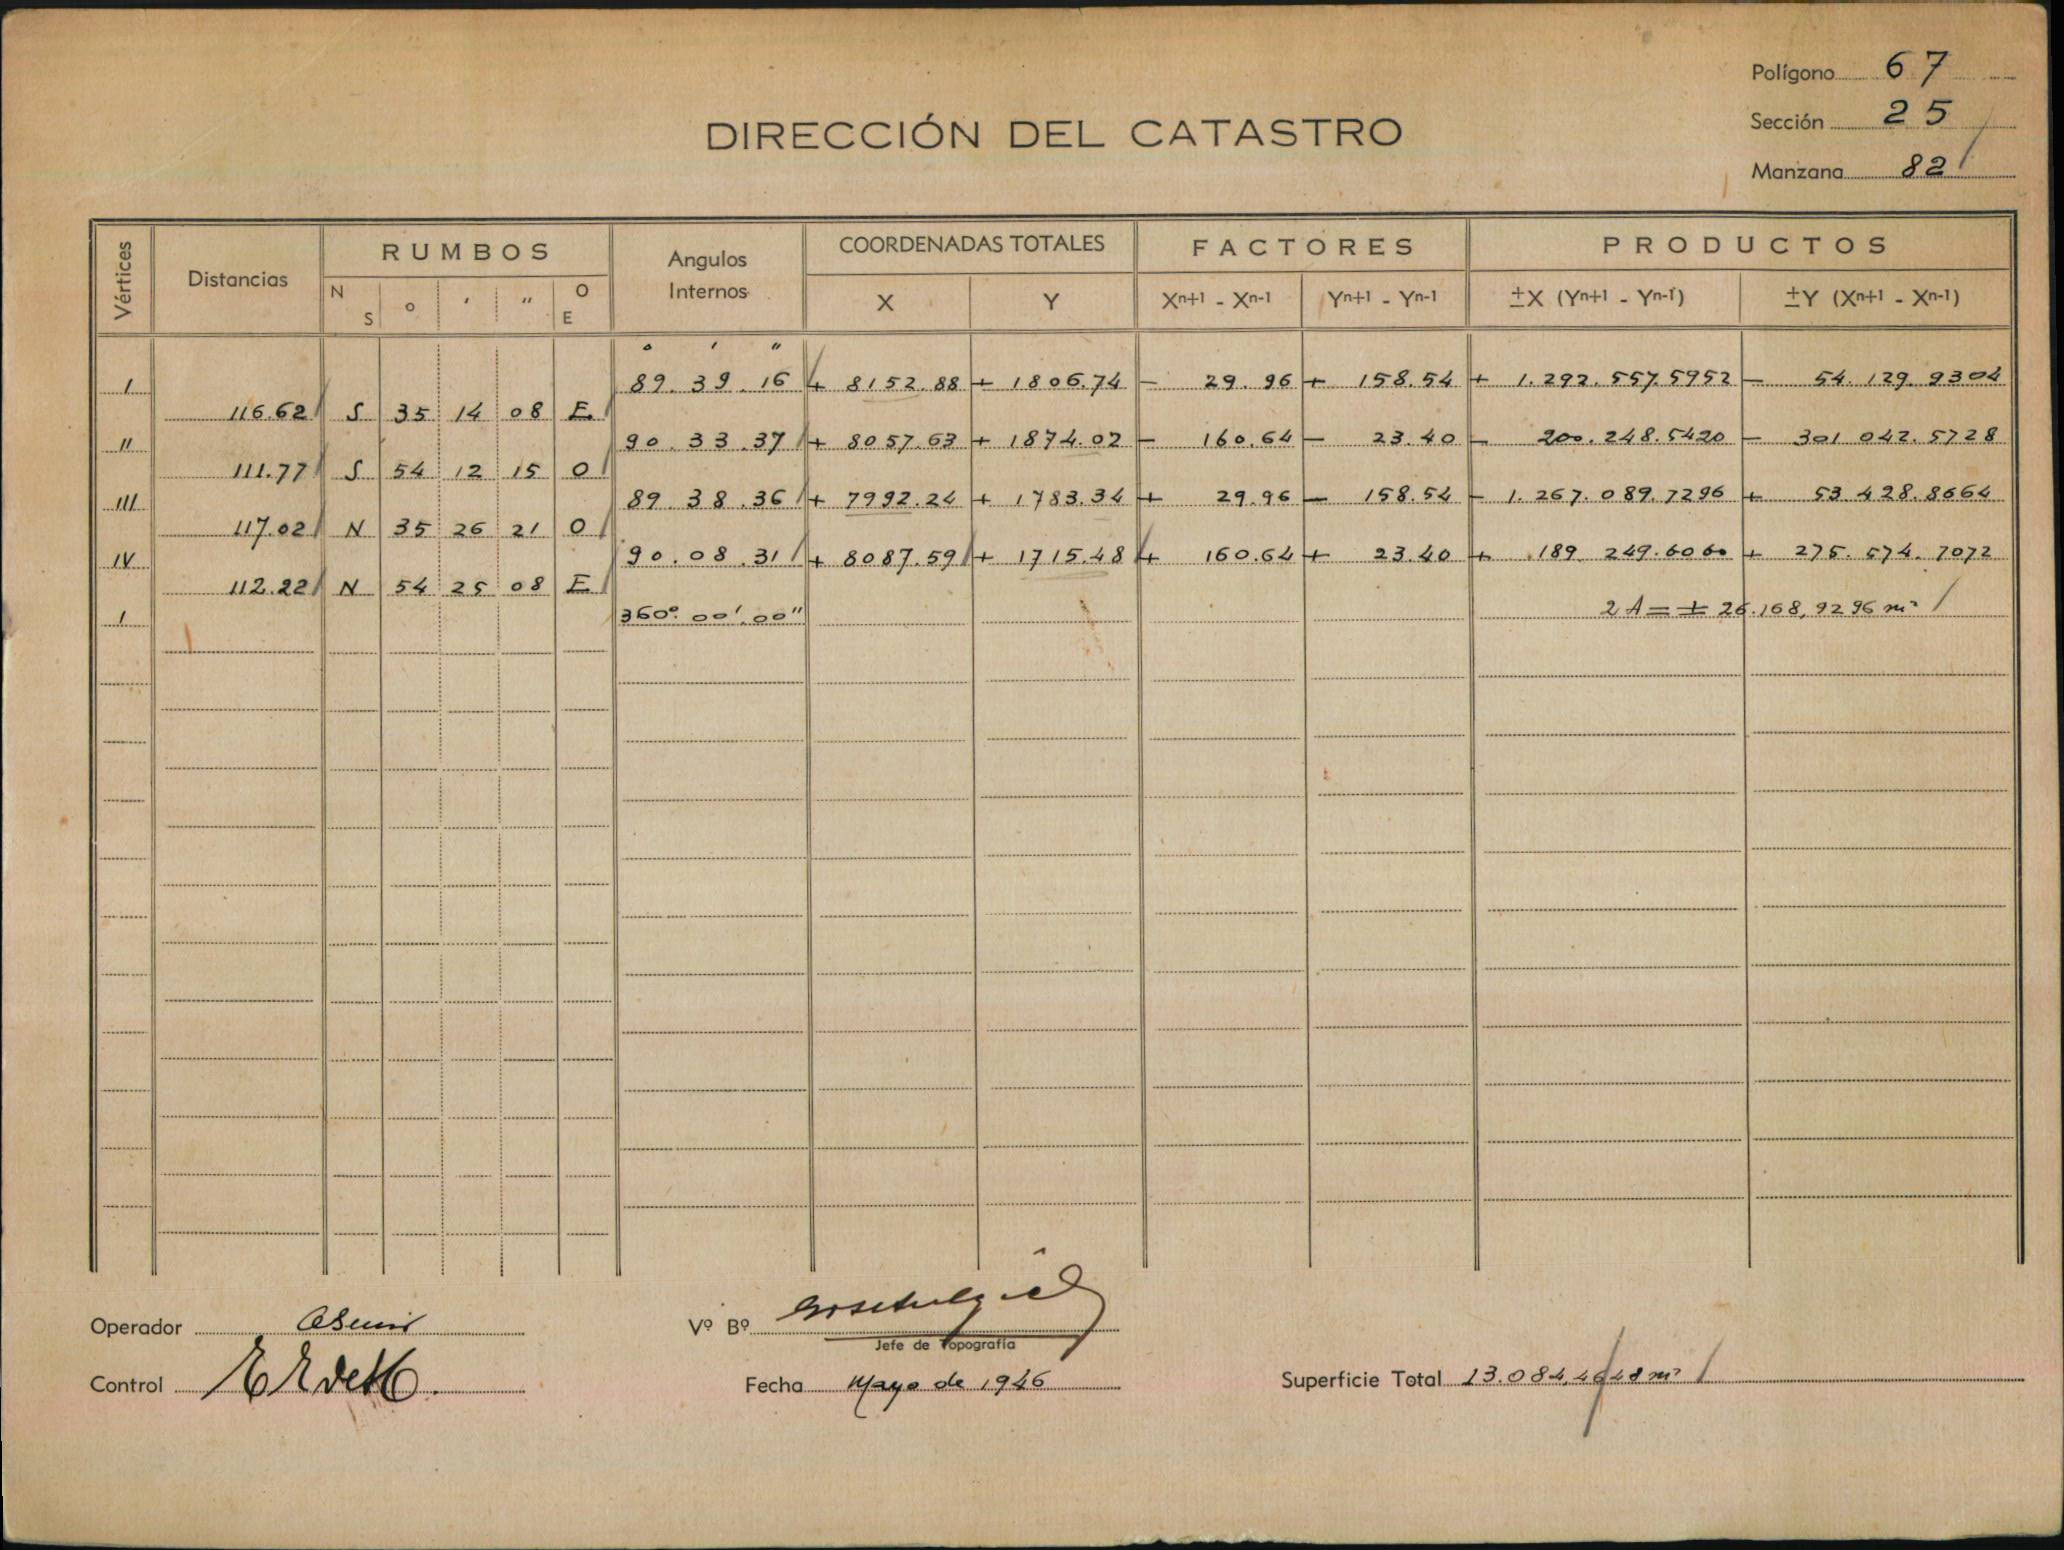 Polígono 67
Sección 25
Manzana 82
DIRECCIÓN DEL CATASTRO
Vértices Distancias RUMBOS Angulos Internos COORDENADAS TOTALES FACTORES PRODUCTOS
N S ° ' " O E X Y Xn+1 - Xn-1 Yn+1 - Yn-1 ±X (Yn+1 - Yn-1) ±Y (Xn+1 - Xn-1)
° ' "
I 89. 39. 16 + 8152.88 + 1806.74 - 29.96 + 158.54 + 1.292.557.5952 - 54.129.9304
116.62 S 35 14 08 E
II 90. 33. 37 + 8057.63 + 1874.02 - 160.64 - 23.40 - 188.548.5420 - 301.042.5728
111.77 S 54 12 15 O
III 89. 38. 36 + 7992.24 + 1783.34 + 29.96 - 158.54 - 1.267.089.7296 + 53.428.8664
117.02 N 35 26 21 O
IV 90. 08. 31 + 8087.59 + 1715.48 + 160.64 + 23.40 + 189.249.6060 + 275.574.7072
112.22 N 54 25 08 E
I 360°.00'.00" 2A = ± 26.168,9296 m²
Operador
Vº Bº
Jefe de Topografía
Control
Fecha Mayo de 1946
Superficie Total 13.084,4648 m²